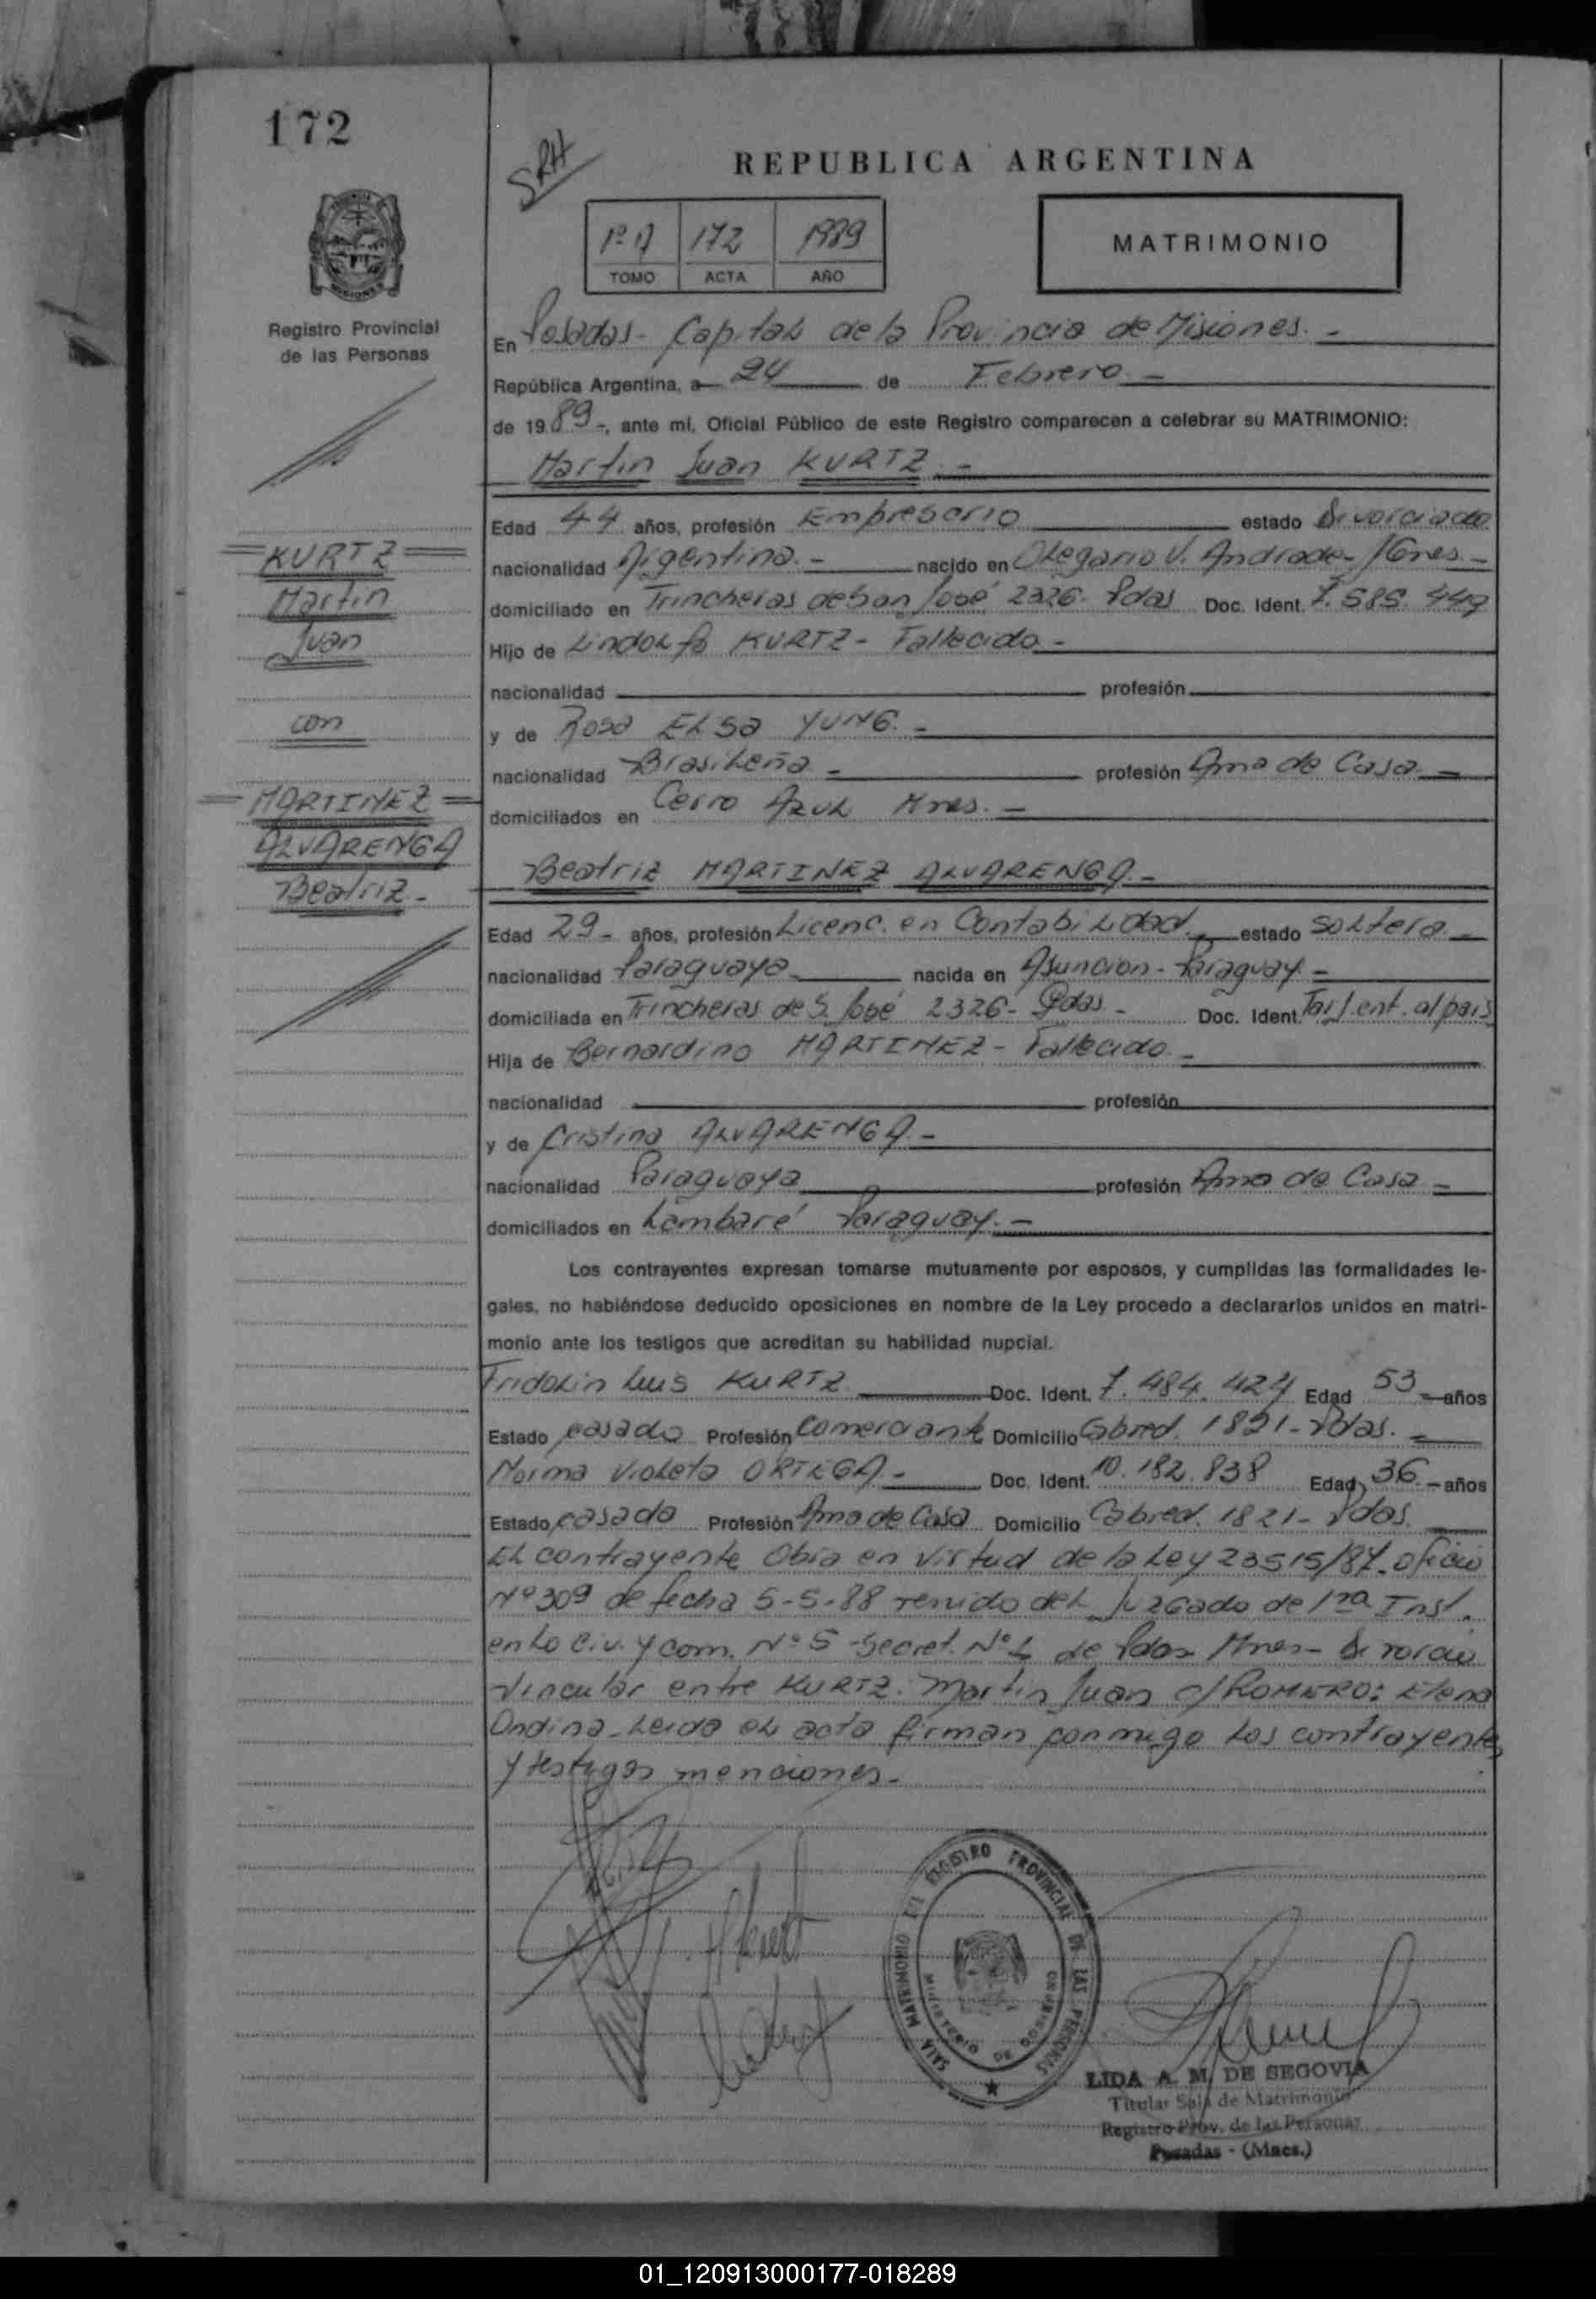 172
SRH
REPUBLICA ARGENTINA
1º A 172 1989
TOMO ACTA AÑO
MATRIMONIO
Registro Provincial
de las Personas
En Posadas - Capital de la Provincia de Misiones. -
República Argentina, a 24 de Febrero. -
de 1989-, ante mi, Oficial Público de este Registro comparecen a celebrar su MATRIMONIO:
Martin Juan KURTZ. -
KURTZ
Martin
Juan
con
MARTINEZ
ALVARENGA
Beatriz. -
Edad 44 años, profesión Empresario estado Divorciado
nacionalidad Argentina. - nacido en Olegario V. Andrade - Mnes. -
domiciliado en Trincheras de San José 2326 - Pdas Doc. Ident. 7.585.449
Hijo de Lindolfo KURTZ - Fallecido -
nacionalidad profesión
y de Rosa ELSA YUNG. -
nacionalidad Brasileña - profesión Ama de Casa. -
domiciliados en Cerro Azul Mnes. -
Beatriz MARTINEZ ALVARENGA. -
Edad 29 - años, profesión Licenc. en Contabilidad. estado soltera -
nacionalidad Paraguaya nacida en Asuncion - Paraguay. -
domiciliada en Trincheras de S. José 2326 - Pdas. - Doc. Ident. Tarj. ent. al pais
Hija de Bernardino MARTINEZ - Fallecido. -
nacionalidad profesión
y de Cristina ALVARENGA. -
nacionalidad Paraguaya profesión Ama de Casa -
domiciliados en Lambaré Paraguay. -
Los contrayentes expresan tomarse mutuamente por esposos, y cumplidas las formalidades le-
gales, no habiéndose deducido oposiciones en nombre de la Ley procedo a declararlos unidos en matri-
monio ante los testigos que acreditan su habilidad nupcial.
Fridolin Luis KURTZ Doc. Ident. 7.484.424 Edad 53 años
Estado casado Profesión Comerciante Domicilio Cabred. 1821 - Pdas. -
Norma Violeta ORTEGA - Doc. Ident. 10.182.838 Edad 36 - años
Estado casada Profesión Ama de Casa Domicilio Cabred. 1821 - Pdas.
El contrayente obra en virtud de la Ley 23515/87. oficio
Nº 309 de fecha 5-5-88 venido del Juzgado de 1ra Inst.
en lo Civ. y com. Nº 5 - Secret. Nº de Pdas Mnes - Divorcio
Vincular entre KURTZ: Martin Juan c/ ROMERO: Elena
Ondina - Leida el acta firman conmigo los contrayentes
y testigos menciones. -
SALA MATRIMONIO DEL REGISTRO PROVINCIAL DE LAS PERSONAS
MINISTERIO DE GOBIERNO
LIDA A. M. DE SEGOVIA
Titular Sala de Matrimonio
Registro Prov. de las Personas
Posadas - (Mnes.)
01_120913000177-018289